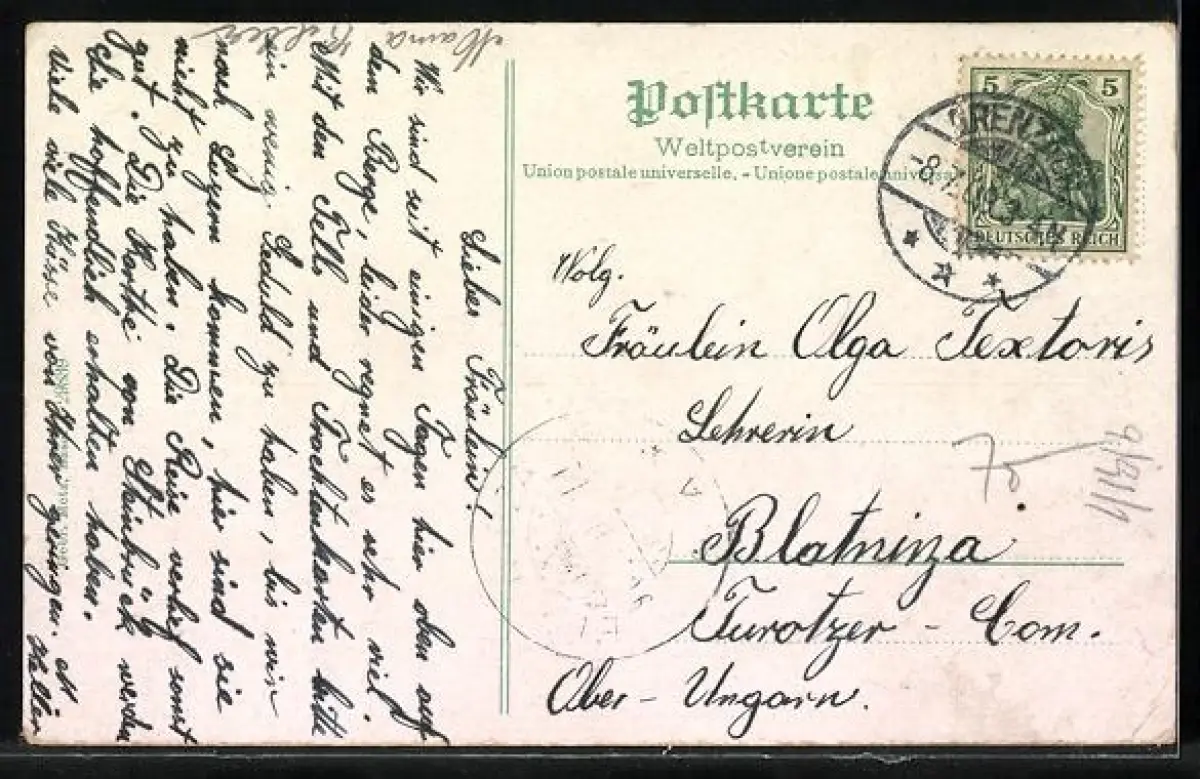 Postkarte
Weltpostverein
Union postale universelle. - Unione postale universale
5 5
DEUTSCHES REICH
Wolg.
Fräulein Olga Textoris
Lehrerin
Blatniza
Turotzer - Com.
Ober - Ungarn.
Mama
Liebes Fräulein!
Wir sind seit einigen Tagen hier oben auf
dem Berge, leider regnet es sehr viel.
Mit den Tells und Trachtenkarten bitte
ein wenig Geduld zu haben, bis wir
nach Luzern kommen, hier sind sie
nicht zu haben. Die Reise verlief sonst
gut. Die Karthe von Steinbrück werden
Sie hoffendlich erhalten haben.
Viele viele Küsse von Ihrer geringen. M
Haller